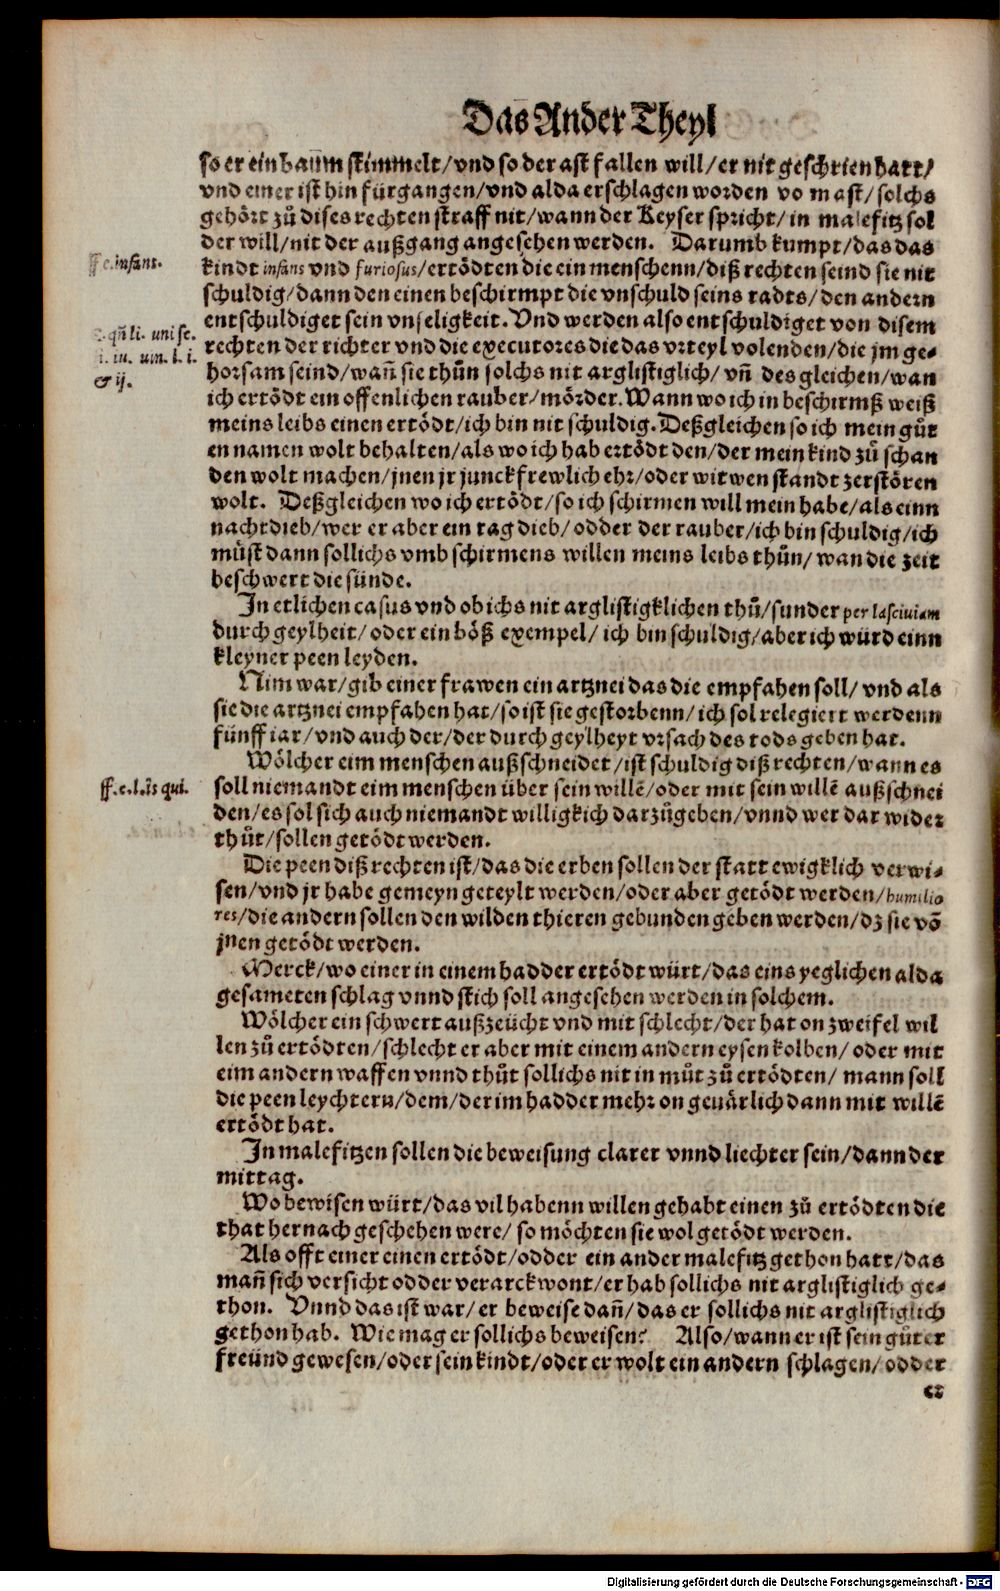 Das Ander Theyl
so er ein baum stimmelt/vnd so der ast fallen will/er nit geschrien hatt/
vnd einer ist hin fürgangen/vnd alda erschlagen worden vo m ast/solchs
gehört zů dises rechten straff nit/wann der Keyser spricht/in malefitz sol
der will/nit der außgang angesehen werden. Darumb kumpt/das das
ff e. infans.
kindt infans vnd furiosus/ertödten die ein menschenn/diß rechten seind sie nit
schuldig/dann den einen beschirmpt die vnschuld seins radts/den andern
entschuldiget sein vnseligkeit. Vnd werden also entschuldiget von disem
rechten der richter vnd die executores die das vrteyl volenden/die jm ge-
& ij.
horsam seind/wañ sie thůn solchs nit arglistiglich/vñ des gleichen/wan
ich ertödt ein offenlichen rauber/mörder. Wann wo ich in beschirmß weiß
meins leibs einen ertödt/ich bin nit schuldig. Deßgleichen so ich mein gůt
en namen wolt behalten/als wo ich hab ertödt den/der mein kind zů schan
den wolt machen/jnen jr junckfrewlich ehr/oder witwen standt zerstören
wolt. Deßgleichen wo ich ertödt/so ich schirmen will mein habe/als einn
nachtdieb/wer er aber ein tag dieb/odder der rauber/ich bin schuldig/ich
můst dann sollichs vmb schirmens willen meins leibs thůn/wan die zeit
beschwert die sünde.
In etlichen casus vnd ob ichs nit arglistigklichen thů/sunder per lasciuiam
durch geylheit/oder ein böß exempel/ich bin schuldig/aber ich würd einn
kleyner peen leyden.
Nim war/gib einer frawen ein artznei das die empfahen soll/vnd als
sie die artznei empfahen hat/so ist sie gestorbenn/ich sol relegiert werdenn
fünff iar/vnd auch der/der durch geylheyt vrsach des tods geben hat.
Wölcher eim menschen außschneidet/ist schuldig diß rechten/wann es
ff. e. l. is qui.
soll niemandt eim menschen über sein willē/oder mit sein willē außschnei
den/es sol sich auch niemandt willigkich darzůgeben/vnnd wer dar wider
thůt/sollen getödt werden.
Die peen diß rechten ist/das die erben sollen der statt ewigklich verwi-
sen/vnd jr habe gemeyn geteylt werden/oder aber getödt werden/humilio
res/die andern sollen den wilden thieren gebunden geben werden/dz sie vō
jnen getödt werden.
Merck/wo einer in einem hadder ertödt würt/das eins yeglichen alda
gesameten schlag vnnd stich soll angesehen werden in solchem.
Wölcher ein schwert außzeücht vnd mit schlecht/der hat on zweifel wil
len zů ertödten/schlecht er aber mit einem andern eysen kolben/oder mit
eim andern waffen vnnd thůt sollichs nit in můt zů ertödten/mann soll
die peen leychtern/dem/der im hadder mehr on geuärlich dann mit willē
ertödt hat.
In malefitzen sollen die beweisung clarer vnnd liechter sein/dann der
mittag.
Wo bewisen würt/das vil habenn willen gehabt einen zů ertödten die
that hernach geschehen were/so möchten sie wol getödt werden.
Als offt einer einen ertödt/odder ein ander malefitz gethon hatt/das
mañ sich versicht odder verarckwont/er hab sollichs nit arglistiglich ge-
thon. Vnnd das ist war/er beweise dañ/das er sollichs nit arglistiglich
gethon hab. Wie mag er sollichs beweisen? Also/wann er ist sein gůter
freünd gewesen/oder sein kindt/oder er wolt ein andern schlagen/odder
er
Digitalisierung gefördert durch die Deutsche Forschungsgemeinschaft - DFG